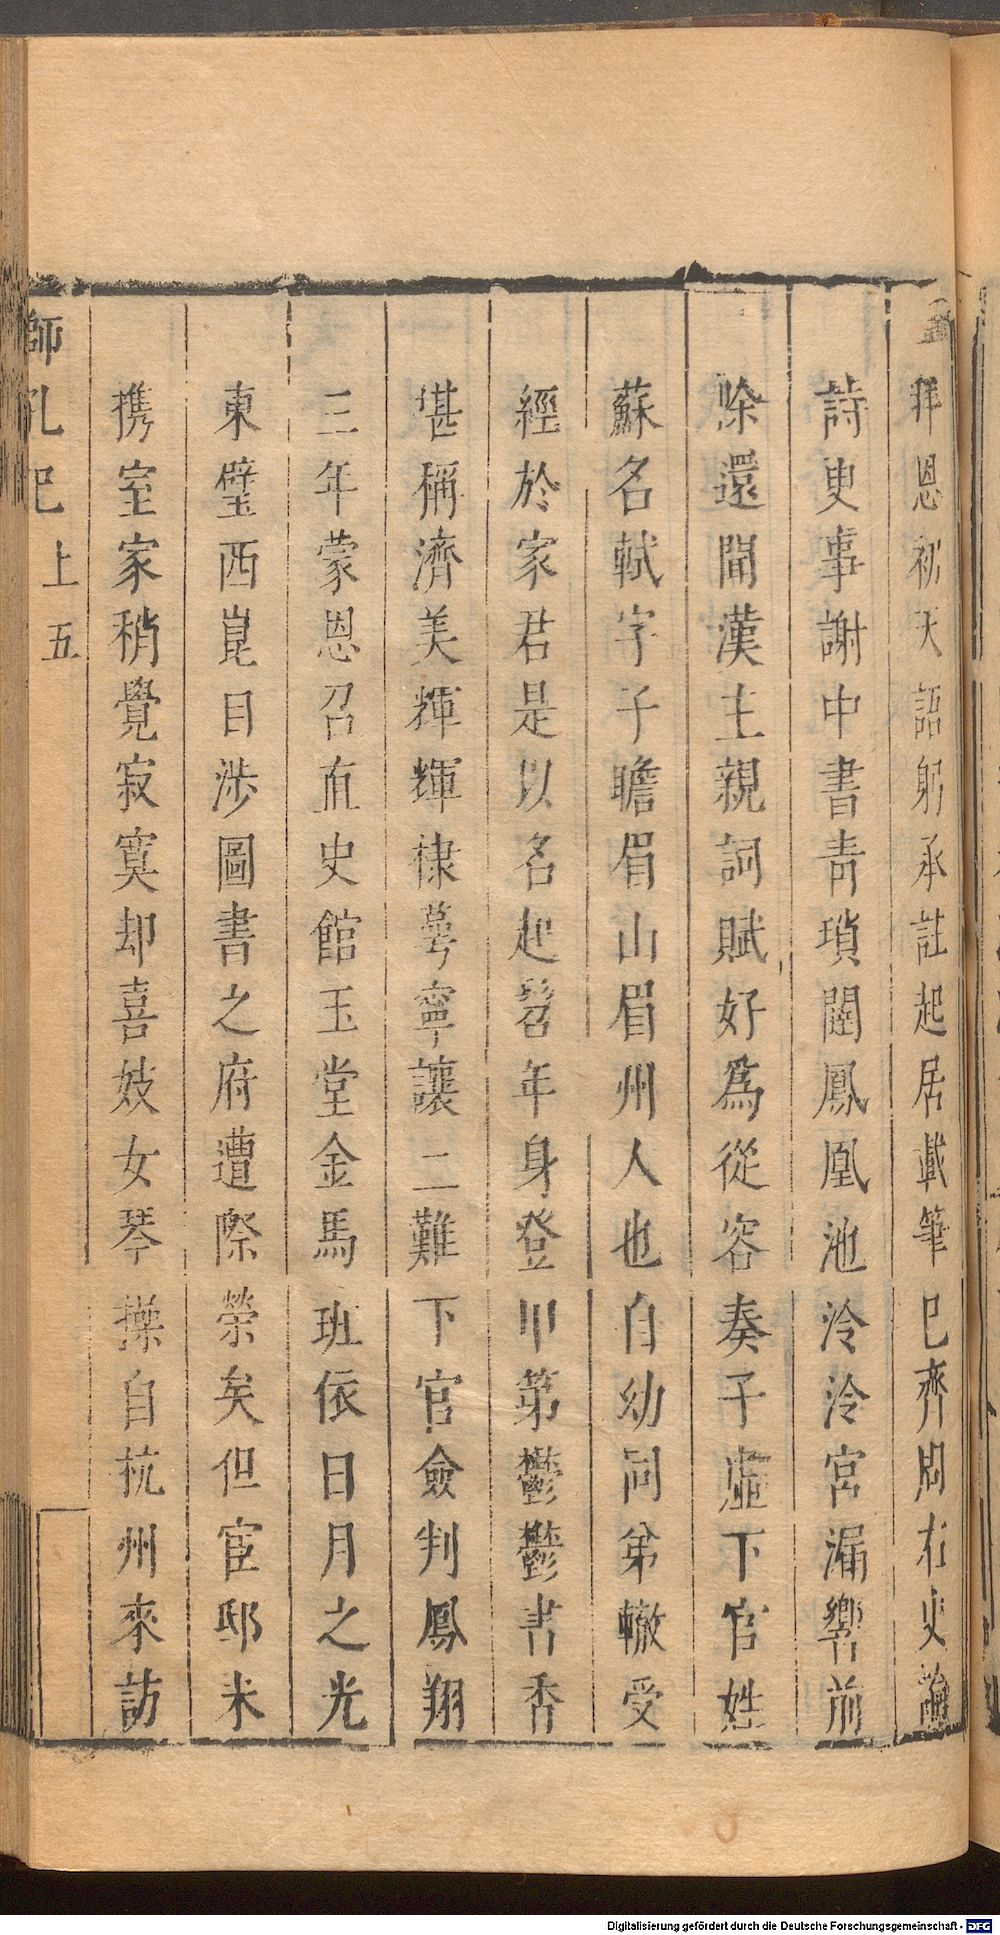 孟拜恩初天語躬承註起居載筆已齊周右史論
詩史事謝中書靑瑣闥鳳凰池泠泠宮漏響前
除還聞漢主親詞賦好爲從容奏子虛下官姓
蘇名軾字子瞻眉山眉州人也自幼同弟轍受
經於家君是以名起髫年身登甲第鬱鬱書香
堪稱濟美輝輝棣萼寧讓二難下官僉判鳳翔
三年蒙恩召直史館玉堂金馬班依日月之光
東璧西崑目涉圖書之府遭際榮矣但宦邸未
携室家稍覺寂寞却喜妓女琴操自杭州來訪
師 上五
Digitalisierung gefördert durch die Deutsche Forschungsgemeinschaft - DFG